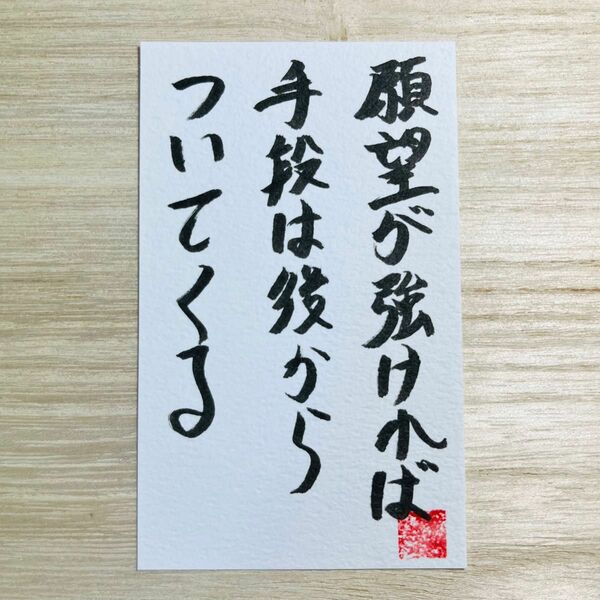 願望が強ければ
手段は後から
ついてくる